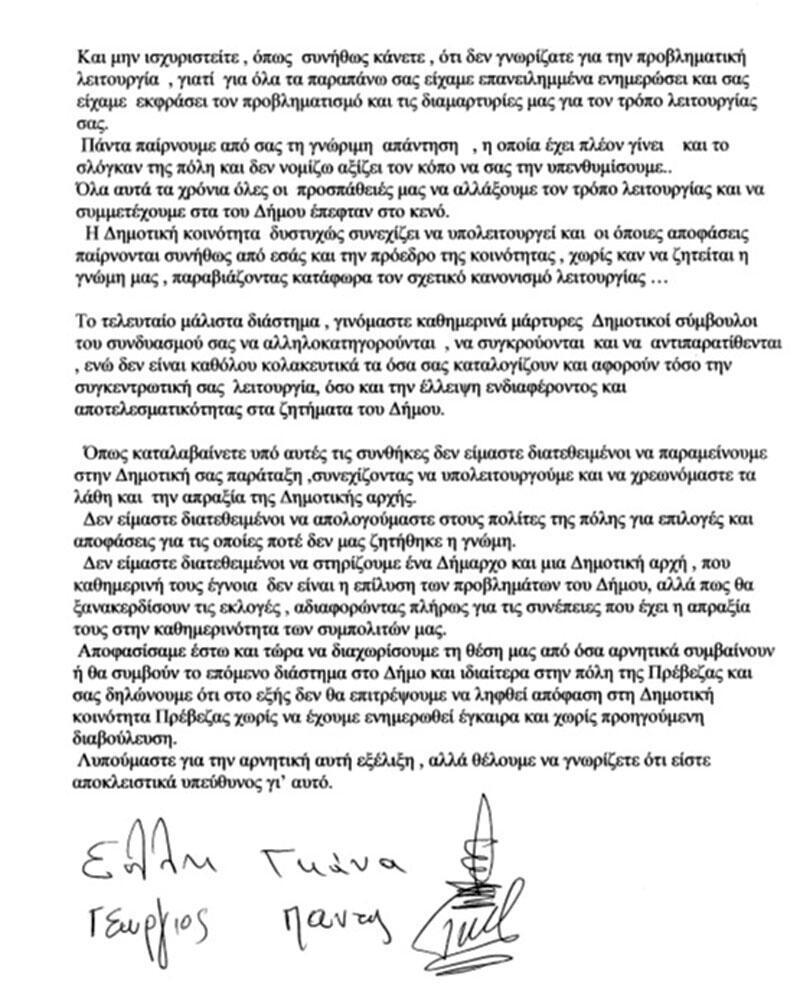 Και μην ισχυριστείτε , όπως συνήθως κάνετε , ότι δεν γνωρίζατε για την προβληματική
λειτουργία , γιατί για όλα τα παραπάνω σας είχαμε επανειλημμένα ενημερώσει και σας
είχαμε εκφράσει τον προβληματισμό και τις διαμαρτυρίες μας για τον τρόπο λειτουργίας
σας.
Πάντα παίρνουμε από σας τη γνώριμη απάντηση , η οποία έχει πλέον γίνει και το
σλόγκαν της πόλη και δεν νομίζω αξίζει τον κόπο να σας την υπενθυμίσουμε..
Όλα αυτά τα χρόνια όλες οι προσπάθειές μας να αλλάξουμε τον τρόπο λειτουργίας και να
συμμετέχουμε στα του Δήμου έπεφταν στο κενό.
Η Δημοτική κοινότητα δυστυχώς συνεχίζει να υπολειτουργεί και οι όποιες αποφάσεις
παίρνονται συνήθως από εσάς και την πρόεδρο της κοινότητας , χωρίς καν να ζητείται η
γνώμη μας , παραβιάζοντας κατάφωρα τον σχετικό κανονισμό λειτουργίας …
Το τελευταίο μάλιστα διάστημα , γινόμαστε καθημερινά μάρτυρες Δημοτικοί σύμβουλοι
του συνδυασμού σας να αλληλοκατηγορούνται , να συγκρούονται και να αντιπαρατίθενται
, ενώ δεν είναι καθόλου κολακευτικά τα όσα σας καταλογίζουν και αφορούν τόσο την
συγκεντρωτική σας λειτουργία, όσο και την έλλειψη ενδιαφέροντος και
αποτελεσματικότητας στα ζητήματα του Δήμου.
Όπως καταλαβαίνετε υπό αυτές τις συνθήκες δεν είμαστε διατεθειμένοι να παραμείνουμε
στην Δημοτική σας παράταξη ,συνεχίζοντας να υπολειτουργούμε και να χρεωνόμαστε τα
λάθη και την απραξία της Δημοτικής αρχής.
Δεν είμαστε διατεθειμένοι να απολογούμαστε στους πολίτες της πόλης για επιλογές και
αποφάσεις για τις οποίες ποτέ δεν μας ζητήθηκε η γνώμη.
Δεν είμαστε διατεθειμένοι να στηρίζουμε ένα Δήμαρχο και μια Δημοτική αρχή , που
καθημερινή τους έγνοια δεν είναι η επίλυση των προβλημάτων του Δήμου, αλλά πως θα
ξανακερδίσουν τις εκλογές , αδιαφορώντας πλήρως για τις συνέπειες που έχει η απραξία
τους στην καθημερινότητα των συμπολιτών μας.
Αποφασίσαμε έστω και τώρα να διαχωρίσουμε τη θέση μας από όσα αρνητικά συμβαίνουν
ή θα συμβούν το επόμενο διάστημα στο Δήμο και ιδιαίτερα στην πόλη της Πρέβεζας και
σας δηλώνουμε ότι στο εξής δεν θα επιτρέψουμε να ληφθεί απόφαση στη Δημοτική
κοινότητα Πρέβεζας χωρίς να έχουμε ενημερωθεί έγκαιρα και χωρίς προηγούμενη
διαβούλευση.
Λυπούμαστε για την αρνητική αυτή εξέλιξη , αλλά θέλουμε να γνωρίζετε ότι είστε
αποκλειστικά υπεύθυνος γι' αυτό.
Γκάνα
Γεώργιος